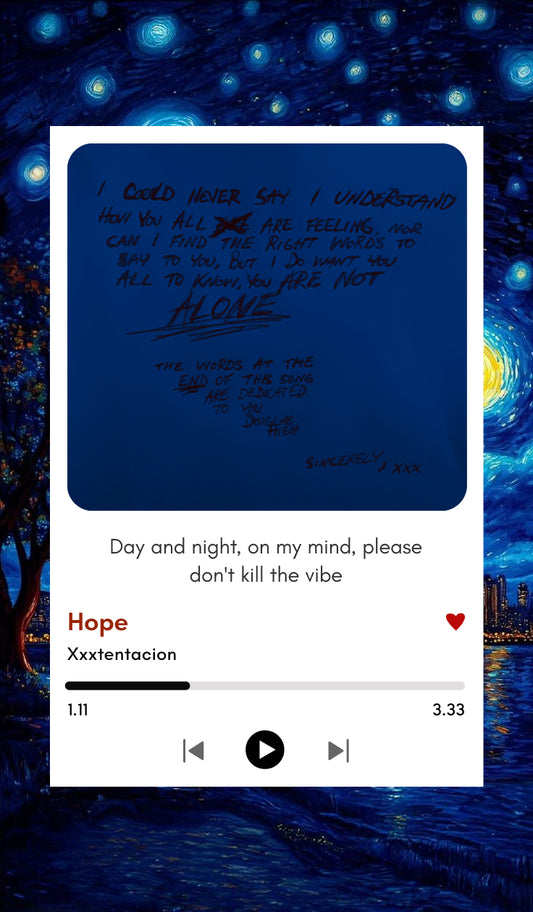 I COULD NEVER SAY I UNDERSTAND
HOW YOU ALL ARE FEELING, NOR
CAN I FIND THE RIGHT WORDS TO
SAY TO YOU, BUT I DO WANT YOU
ALL TO KNOW, YOU ARE NOT
ALONE
THE WORDS AT THE
END OF THIS SONG
ARE DEDICATED
TO YOU
DOUGLAS
HIGH
SINCERELY, XXX
Day and night, on my mind, please
don't kill the vibe
Hope
Xxxtentacion
1.11 3.33